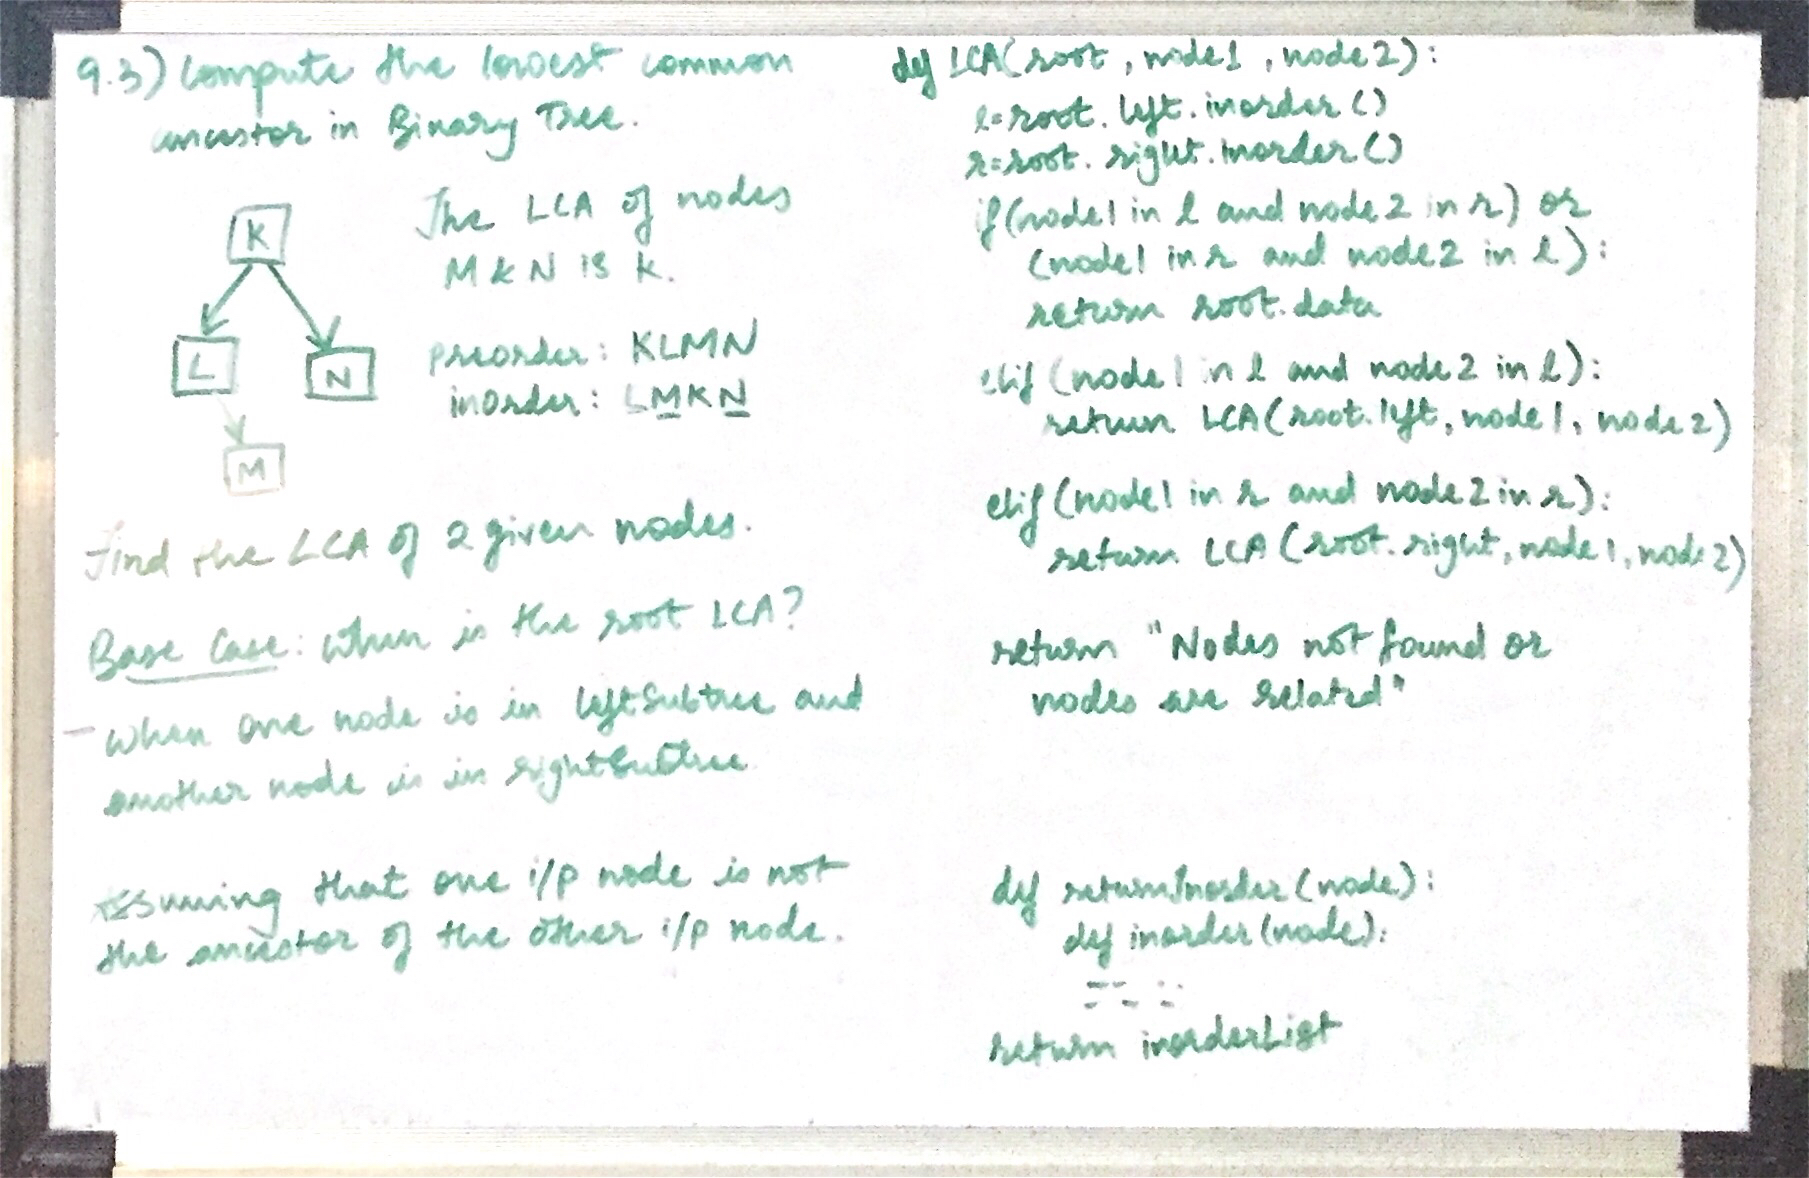 9.3) Compute the lowest common
ancestor in Binary Tree.
K
L
N
M
The LCA of nodes
M & N is K.
preorder: KLMN
inorder: LMKN
Find the LCA of 2 given nodes.
Base Case: When is the root LCA?
- When one node is in leftSubtree and
another node is in rightSubtree.
Assuming that one i/p node is not
the ancestor of the other i/p node.
def LCA(root, node1, node2):
l=root.left.inorder()
r=root.right.inorder()
if(node1 in l and node2 in r) or
(node1 in r and node2 in l):
return root.data
elif (node1 in l and node2 in l):
return LCA(root.left, node1, node2)
elif (node1 in r and node2 in r):
return LCA (root.right, node1, node2)
return "Nodes not found or
nodes are related"
def returnInorder(node):
def inorder(node):
return inorderList